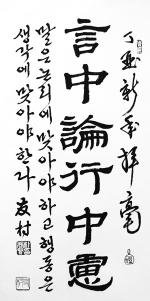 丁亥新年揮毫
言中論行中慮
말은 논리에 맞아야 하고 행동은
생각에 맞아야 한다 友村